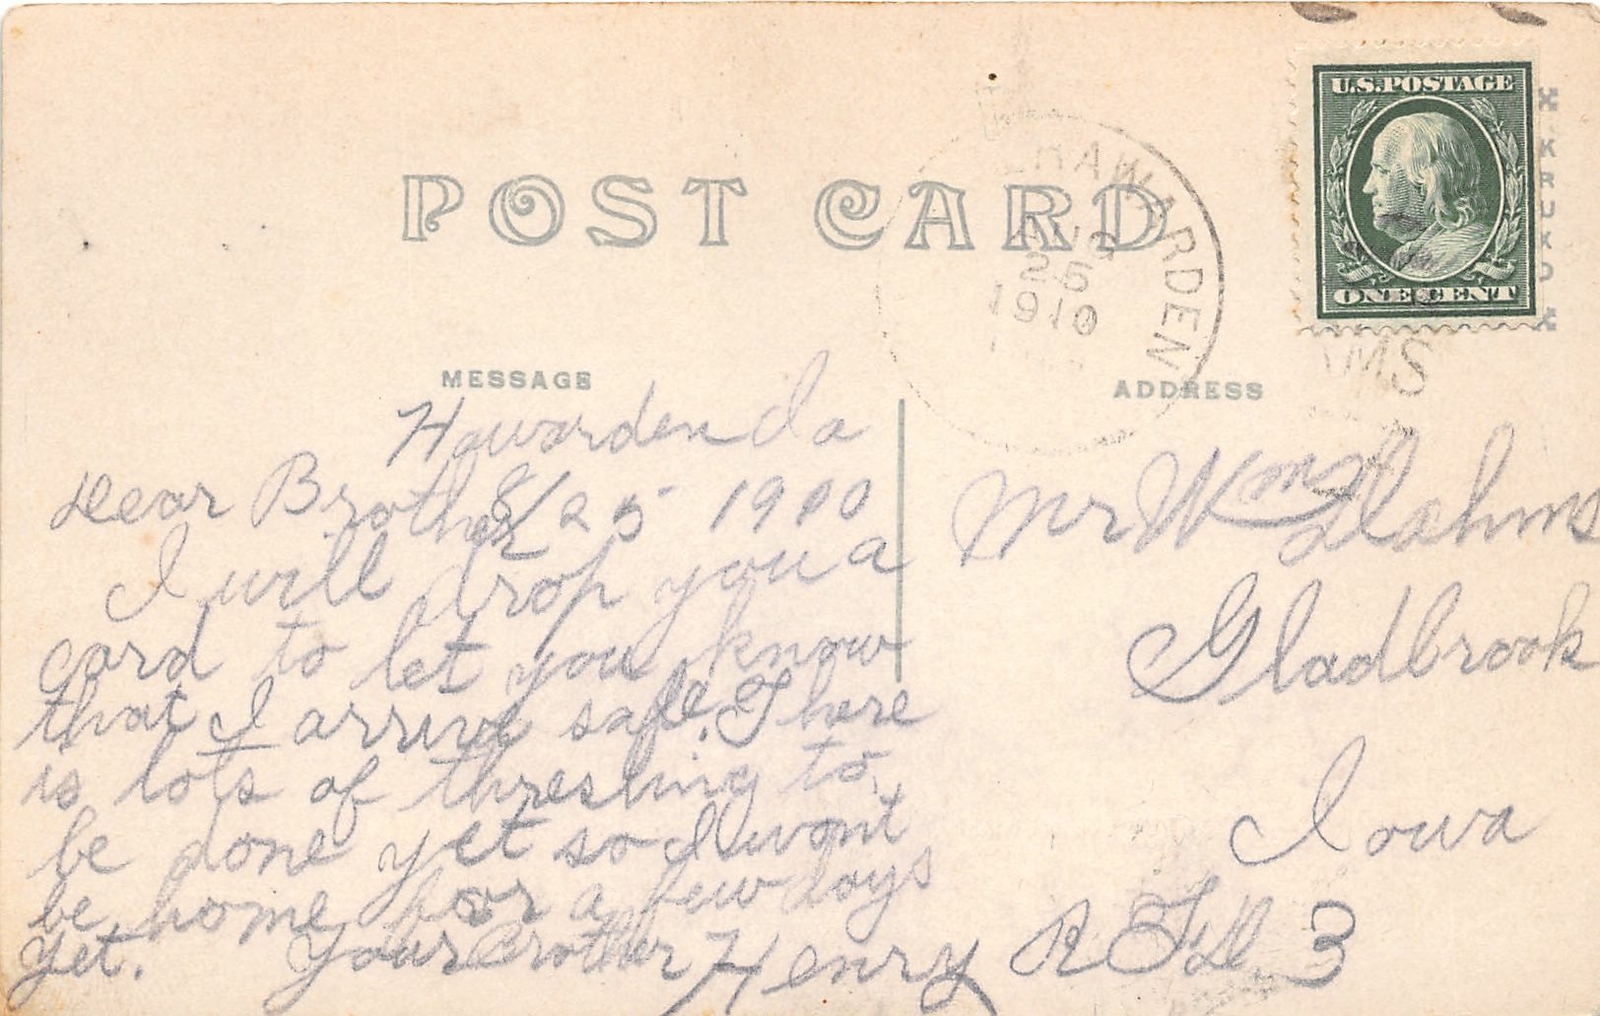 POST CARD
HAWARDEN
AUG
25
1910
U.S. POSTAGE
ONE CENT
KRUXO
MESSAGE
ADDRESS
Hawarden Ia
8/25 1910
Dear Brother
I will drop you a
card to let you know
that I arrived safe. There
is lots of threshing to
be done yet so I wont
be home for a few days
yet. Your Brother Henry
Mr Wm Dahms
Gladbrook
Iowa
R F D 3